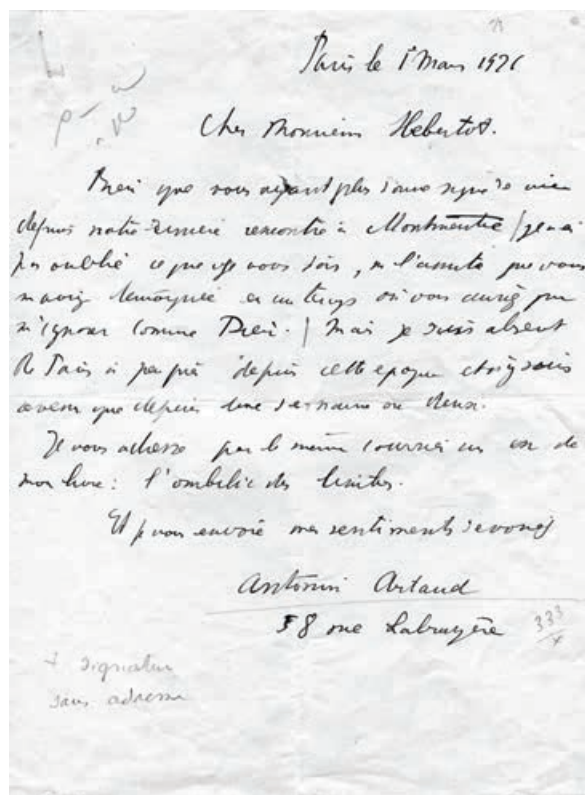 Paris le 1er Mars 1926
Cher Monsieur Hebertot.
Bien que vous ayant plus donné signe de vie
depuis notre dernière rencontre à Montmartre je n'ai
pas oublié ce que je vous dois, ni l'amitié que vous
m'aviez témoignée en un temps où vous auriez pu
m'ignorer comme Dieu. Mais je suis absent
de Paris à peu près depuis cette époque et n'y suis
revenu que depuis une semaine ou deux.
Je vous adresse par le même courrier un ex de
mon livre : l'ombilic des limbes.
Et je vous envoie mes sentiments dévoués
Antonin Artaud
58 rue Labruyère
333
+ signature
sans adresse